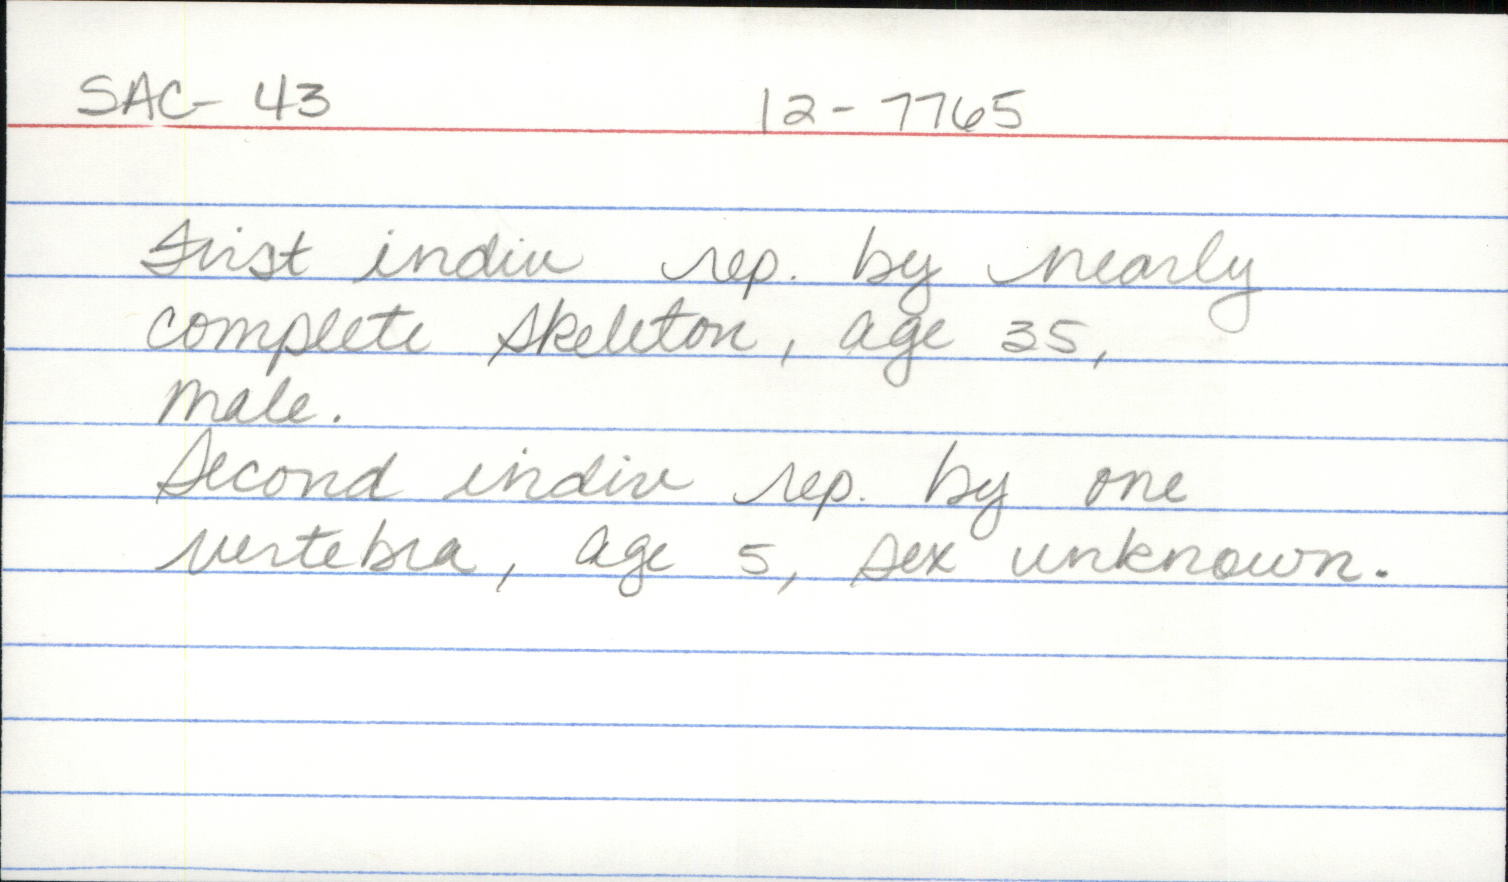 SAC- 43 12-7765
First indiv rep. by nearly
complete skeleton, age 35,
male.
Second indiv rep. by one
vertebra, age 5, sex unknown.